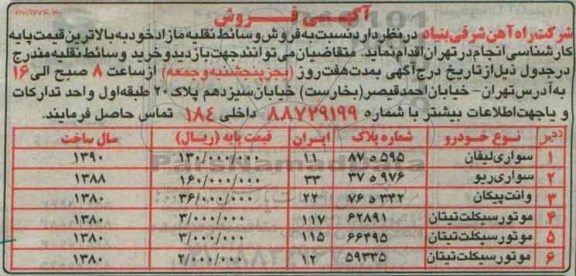 آگهی فروش
شرکت راه آهن شرقی بنیاد در نظر دارد نسبت به فروش وسائط نقلیه مازاد خود به بالاترین قیمت پایه
کارشناسی انجام در تهران اقدام نماید. متقاضیان می توانند جهت بازدید و خرید وسائط نقلیه مندرج
در جدول ذیل از تاریخ درج آگهی بمدت هفت روز (بجز پنجشنبه و جمعه) از ساعت ۸ صبح الی ۱۶
به آدرس تهران - خیابان احمد قیصر (بخارست) خیابان سیزدهم پلاک ۲۰ طبقه اول واحد تدارکات
و یا جهت اطلاعات بیشتر با شماره ۸۸۷۲۹۱۹۹ داخلی ۱۸۴ تماس حاصل فرمایند.
نوع خودرو شماره پلاک ایران قیمت پایه (ریال) سال ساخت
۱ سواری لیفان ۸۷ ه ۵۹۵ ۱۱ ۱۳۰/۰۰۰/۰۰۰ ۱۳۹۰
۲ سواری ریو ۳۷ ه ۹۷۶ ۳۳ ۱۶۰/۰۰۰/۰۰۰ ۱۳۸۸
۳ وانت پیکان ۷۶ ه ۳۴۲ ۲۲ ۳۶/۰۰۰/۰۰۰ ۱۳۸۰
۴ موتورسیکلت تیتان ۶۲۸۹۱ ۱۱۷ ۳/۰۰۰/۰۰۰ ۱۳۸۰
۵ موتورسیکلت تیتان ۶۶۴۹۵ ۱۱۵ ۳/۰۰۰/۰۰۰ ۱۳۸۰
۶ موتورسیکلت تیتان ۵۹۳۳۵ ۱۲ ۲/۰۰۰/۰۰۰ ۱۳۸۰